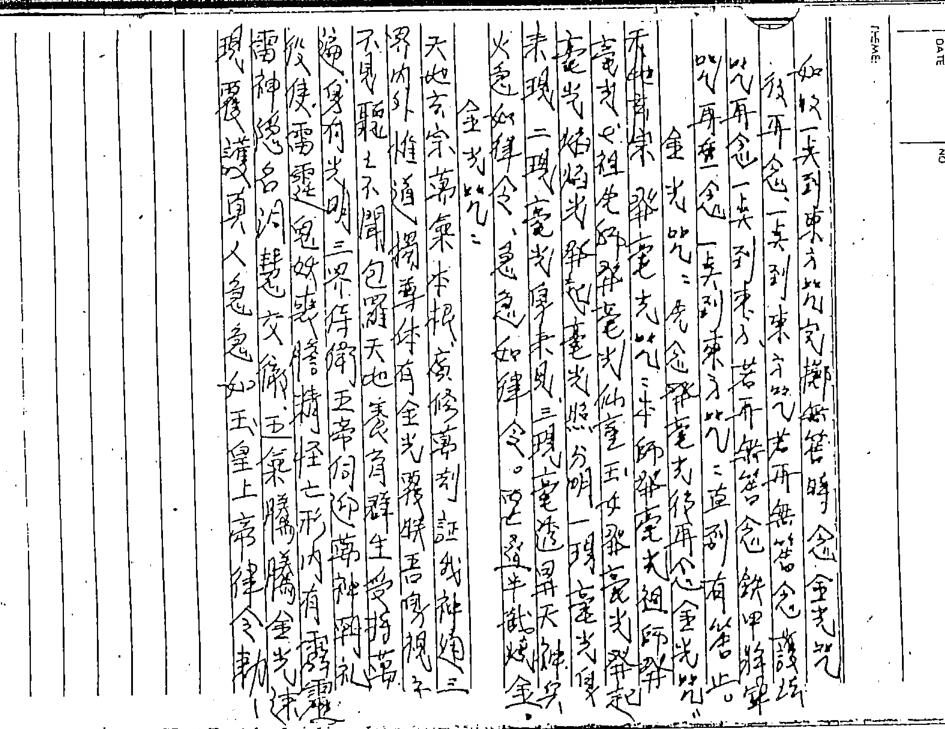 DATE
NO
THEME:
如收一岳到東方咒完擲無筶時念金光咒
後再念、一岳到東方咒若再無筶念護坛
咒再念一岳到東方、若再無筶念鉄甲將軍
咒再無念一岳到東方咒：直到有筶止。
金光咒：先念發毫光後再念金光咒"
天地玄宗發毫光咒：本師發毫光祖師發
毫光七祖先師發毫光仙童玉女發毫光發起
毫光焰焰光發起毫光照分明一現毫光身
未現二現毫光身未見三現毫透昇天神兵
火急如律令、急急如律令。
金光咒：
天地玄宗萬氣本根廣修萬刧証我神通三
界內外惟道獨尊体有金光覆映吾身視之
不見聽之不聞包羅天地養育群生受持萬
遍身有光明三界侍衛五帝伺迎萬神朝礼
役使雷霆鬼妖喪膽精怪亡形內有霹靂
雷神隱名洞慧交徹五氣騰騰金光速
現覆護真人急急如玉皇上帝律令勅